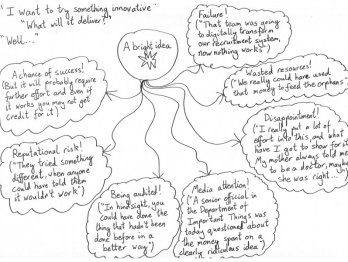 "I want to try something innovative"
"What will it deliver?"
"Well..."
A bright idea
Failure!
("That team was going
to digitally transform
our recruitment system,
now nothing works")
Wasted resources!
("We really could have used
that money to feed the orphans")
Disappointment!
("I really put a lot of
effort into this, and what
have I got to show for it?
My mother always told me
to be a doctor, maybe
she was right...")
Media attention!
("A senior official in
the Department of
Important Things was
today questioned about
the money spent on a
clearly ridiculous idea")
Being audited!
("In hindsight, you
could have done the
thing that hadn't been
done before in a
better way")
Reputational risk!
("They tried something
different, when anyone
could have told them
it wouldn't work")
A chance of success!
(But it will probably require
further effort and even if
it works you may not get
credit for it)